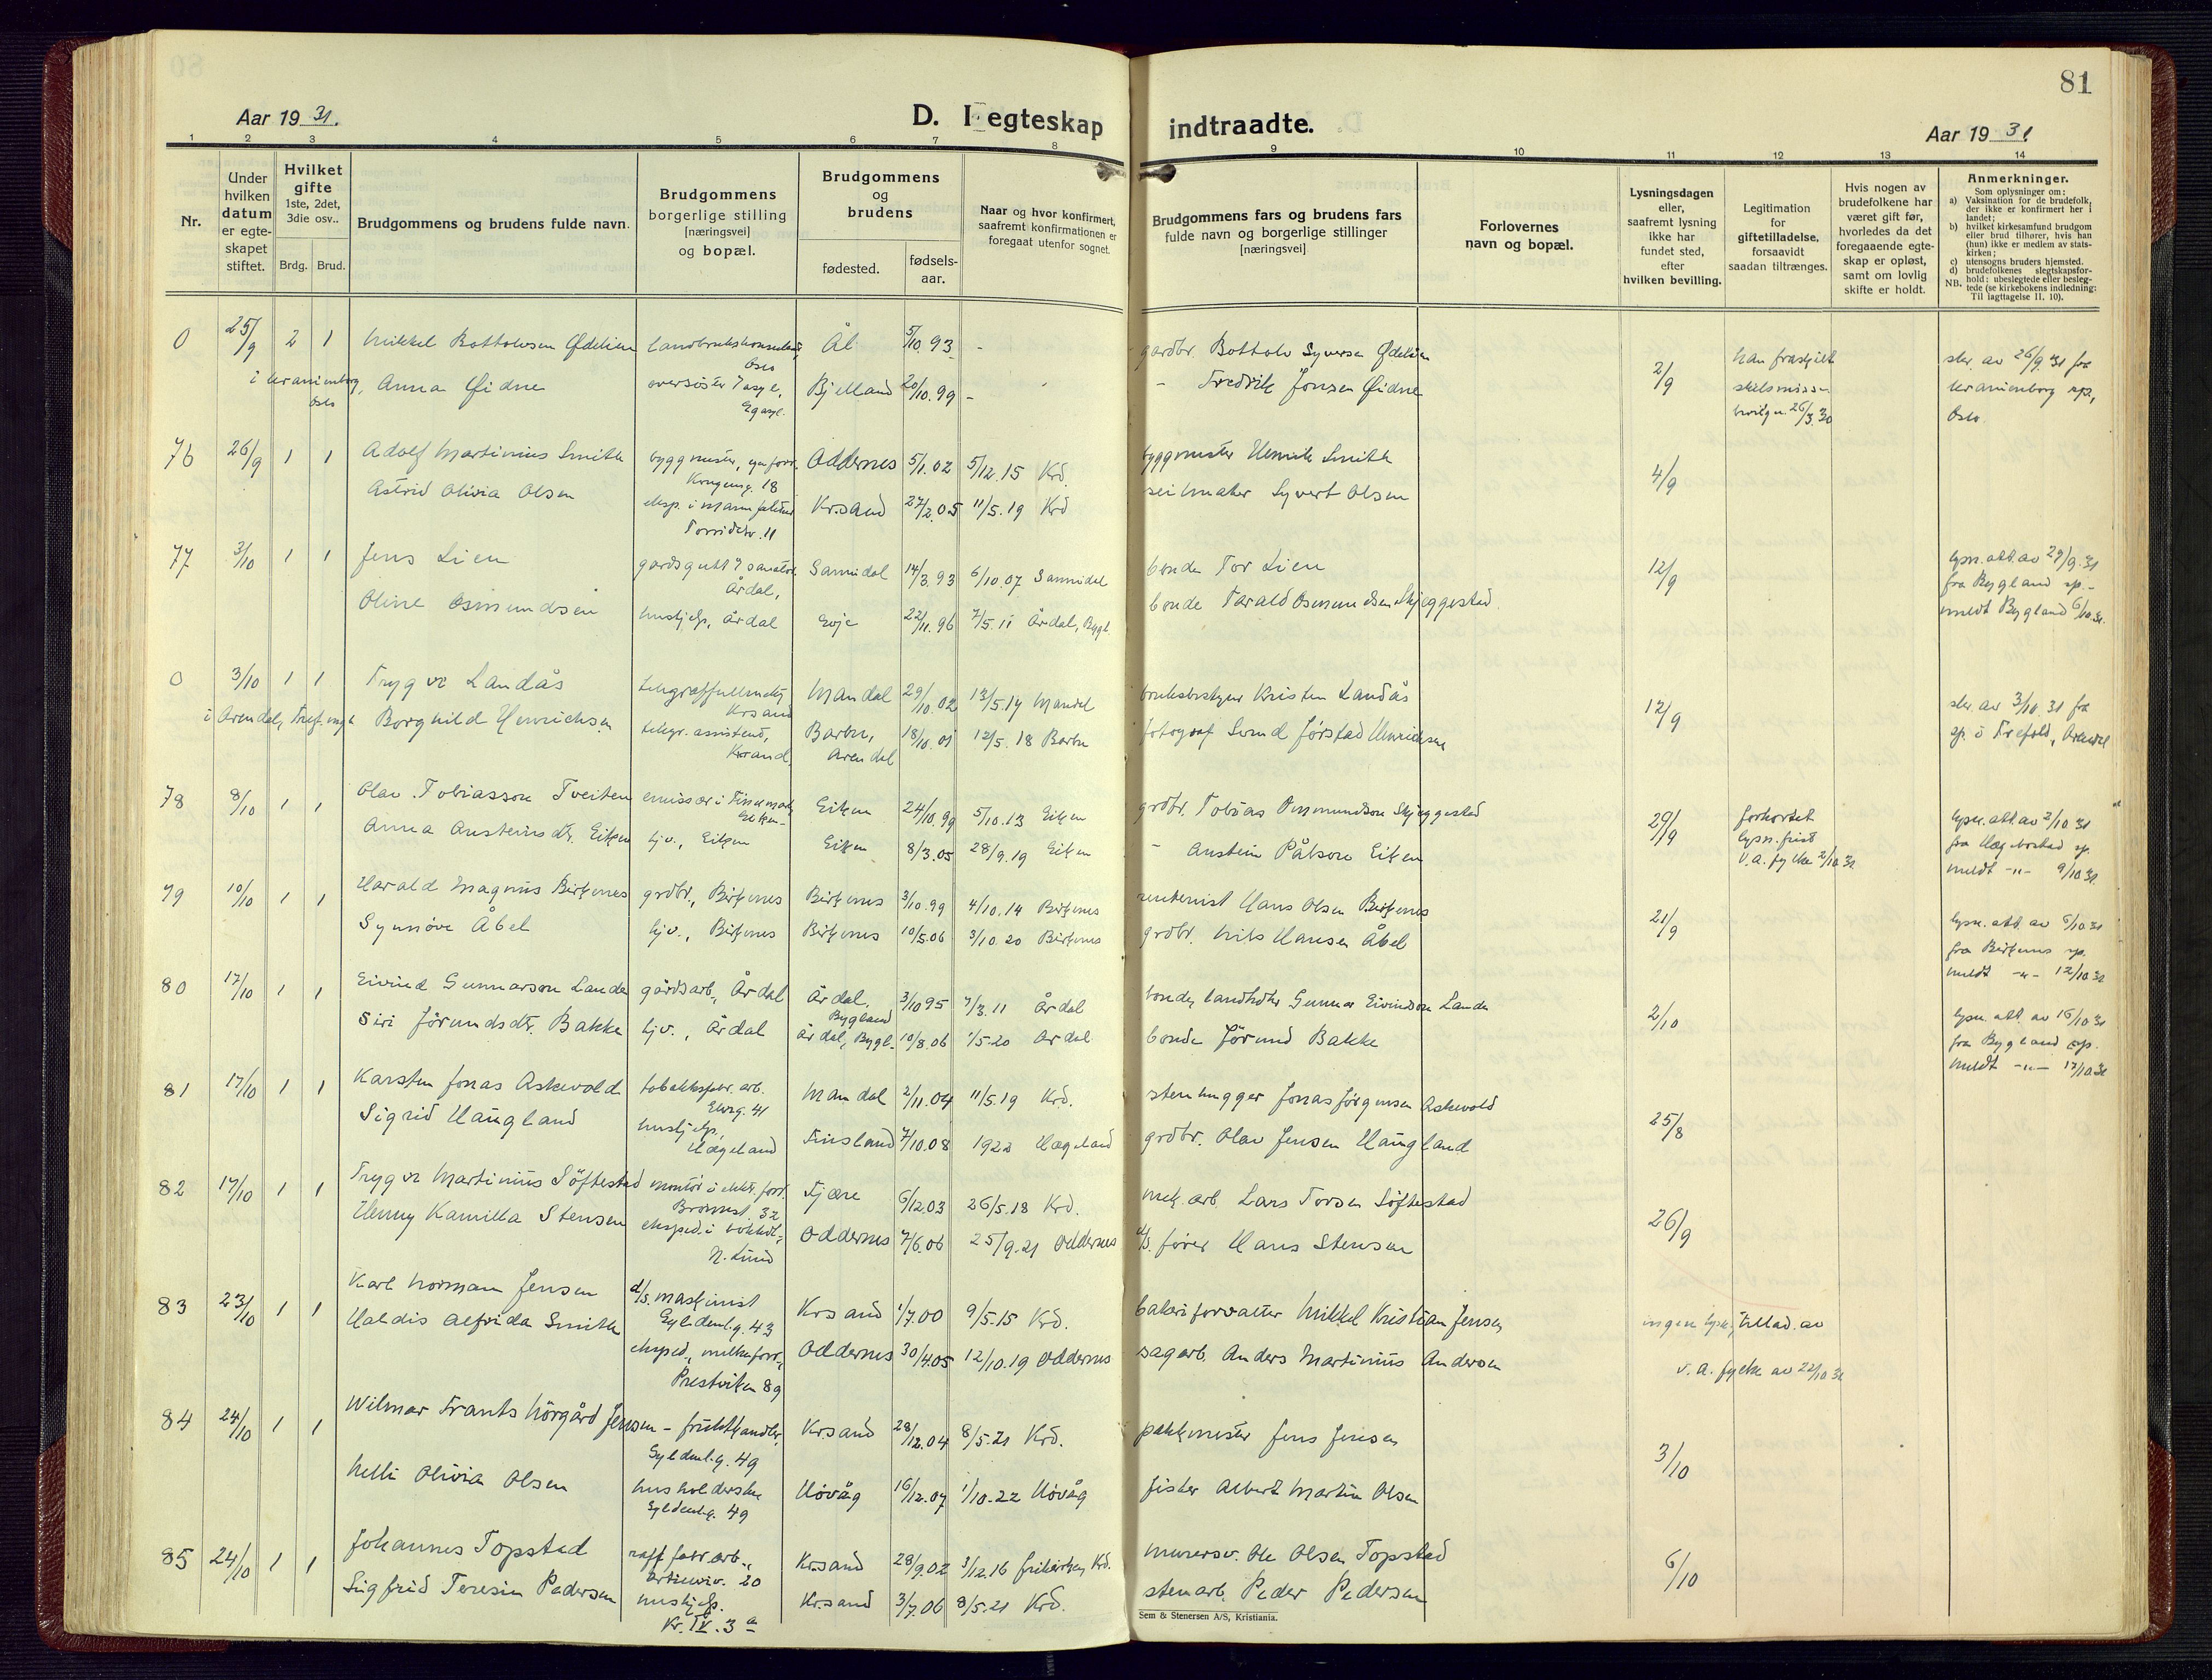 81
Aar 19 31.
D. Egteskap indtraadte.
Aar 19 31
1 2 3 4 5 6 7 8 9 10 11 12 13 14
Nr.
Under hvilken datum er egteskapet stiftet.
Hvilket gifte 1ste, 2det, 3die osv..
Brdg. Brud.
Brudgommens og brudens fulde navn.
Brudgommens borgerlige stilling [næringsvei] og bopæl.
Brudgommens og brudens
fødested. fødsels-aar.
Naar og hvor konfirmert, saafremt konfirmationen er foregaat utenfor sognet.
Brudgommens fars og brudens fars fulde navn og borgerlige stillinger [næringsvei]
Forlovernes navn og bopæl.
Lysningsdagen eller, saafremt lysning ikke har fundet sted, efter hvilken bevilling.
Legitimation for giftetilladelse, forsaavidt saadan tiltrænges.
Hvis nogen av brudefolkene har været gift før, hvorledes da det foregaaende egteskap er opløst, samt om lovlig skifte er holdt.
Anmerkninger.
Som oplysninger om:
a) Vaksination for de brudefolk, der ikke er konfirmert her i landet;
b) hvilket kirkesamfund brudgom eller brud tilhører, hvis han (hun) ikke er medlem av statskirken;
c) utensogns bruders hjemsted.
d) brudefolkenes slegtskapsforhold: ubeslegtede eller beslegtede (se kirkebokens indledning:
NB. Til Iagttagelse II. 10).
0 25/9 2 1 Mikkel Bottolvsen Ødelien Oslo Ål 5/10.93 - gardbr. Bottolv Syversen Ødelien 2/9 han fraskilt skilsmisse 26/3.30 26/9 31 fra
i Uranienborg, Oslo Anna Øidne oversøster Bjelland 20/10.99 - - Fredrik Jonsen Øidne Uranienborg sp, Oslo
76 26/9 1 1 Adolf Martinius Smith byggmester, Kongensg. 18 Oddernes 5/1.02 5/12.15 Krd. byggmester Henrik Smith 4/9
Astrid Olivia Olsen eksp. i manufaktur Torridalsv. 11 Kr.sand 27/2.05 11/5.19 Krd seilmaker Syvert Olsen
77 3/10 1 1 Jens Lien gardsgutt Årdal, Sannidal 14/3.93 6/10.07 Sannidal bonde Tor Lien 12/9 lysn.att. av 29/9.31 fra Bygland sp.-
Oline Osmundsen hushjelp, Årdal Evje 22/11.96 7/5.11 Årdal, Bygl. bonde Tarald Osmundsen Skjeggestad meldt Bygland 6/10.31.
0 3/10 1 1 Trygve Landås Krsand Mandal 29/10.02 13/5.17 Mandal bruksbestyrer Kristen Landås 12/9 3/10.31 fra
i Arendal, Borghild Henrichsen telegr. assistent, Krsand, Barbu, Arendal 18/10.01 12/5.18 Barbu fotograf Svend Jørstad Henrichsen sp. i Trefold., Arendal
78 8/10 1 1 Olav Tobiasson Tveiten emissær i Finnmark, Eiken- Eiken 24/10.99 5/10.13 Eiken grdbr. Tobias Ommundson Skjeggestad 29/9 forkortet lysn.frist v.a. fylke 2/10 31. lysn.att. av 2/10 31 fra Hægebostad sp.
Anna Austeinsdtr. Eiken hjv., Eiken Eiken 8/3.05 28/9.19 Eiken - Austein Pålson Eiken meldt -"- 9/10 31.
79 10/10 1 1 Harald Magnus Birkenes grdbr., Birkenes Birkenes 3/10.99 4/10.14 Birkenes rentenist Hans Olsen Birkenes 21/9 lysn. att. av 6/10 31 fra Birkenes sp.
Synnöve Åbel hjv., Birkenes Birkenes 10/5.06 3/10.20 Birkenes grdbr. Nils Hansen Åbel meldt -"- 12/10 31
80 17/10 1 1 Eivind Gunnarson Lande gårdsarb., Årdal Årdal, Bygland 3/10 95 7/3.11 Årdal bonde, Gunnar Eivindson Lande 2/10 lysn. att. av 16/10 31 fra Bygland sp.
Siri Jörundsdtr. Bakke hjv., Årdal Årdal, Bygl. 10/8.06 1/5.20 Årdal bonde Jörund Bakke meldt -"- 17/10 31
81 17/10 1 1 Karsten Jonas Askevold tobakksfabr. arb. Elveg. 41 Mandal 2/11.04 11/5.19 Krd. stenhugger Jonas Jörgensen Askevold 25/8
Sigrid Haugland hushjelp, Hægeland Finsland 7/10.08 1922 Hægeland grdbr. Olav Jensen Haugland
82 17/10 1 1 Trygve Martinius Söftestad montör i elektr. forr. 32 Fjære 6/12.03 26/5.18 Krd. mek. arb. Lars Torsen Söftestad 26/9
Henny Kamilla Stensen eksped. i bokhdl., N. Lund Oddernes 7/6.06 25/9.21 Oddernes d/s. förer Hans Stensen
83 23/10 1 1 Karl Norman Jensen d/s. maskinist Gyldenl.g. 43 Krsand 1/7.00 9/5.15 Krd. bakeriforvalter Mikkel Kristian Jensen ingen lysn., tillad. av
Haldis Alfrida Smith eksped., melkeforr., Prestviken 89 Oddernes 30/4.05 12/10.19 Oddernes sagarb. Anders Martinius Andersen v. a. fylke av 22/10 31
84 24/10 1 1 Wilmar Frants Nörgård Jensen - frukthandler, Gyldenl.g. 49 Kr.sand 28/12.04 8/5.21 Krd. pakkmester Jens Jensen 3/10
Nelli Olivia Olsen husholderske Gyldenl.g. 49 Hövåg 16/12.07 1/10.22 Hövåg fisker Albert Martin Olsen
85 24/10 1 1 Johannes Topstad raff. fabr. arb., 20 Kr.sand 28/9.02 3/12.16 frikirken Krd. murersv. Ole Olsen Topstad 6/10
Sigfrid Teresia Pedersen hushjelp. Kr. IV. 3 a Kr.sand 3/7.06 8/5.21 Krd. stenarb. Peder Pedersen
Sem & Stenersen A/S, Kristiania.